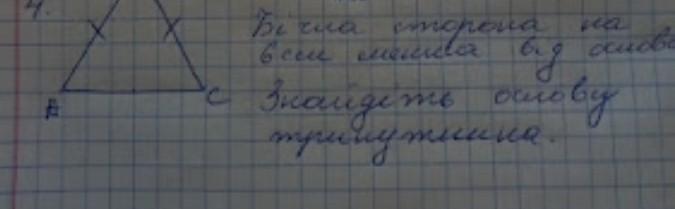 4.
Бічна сторона на
6 см менша від основ
А
С
Знайдіть основу
трикутника.